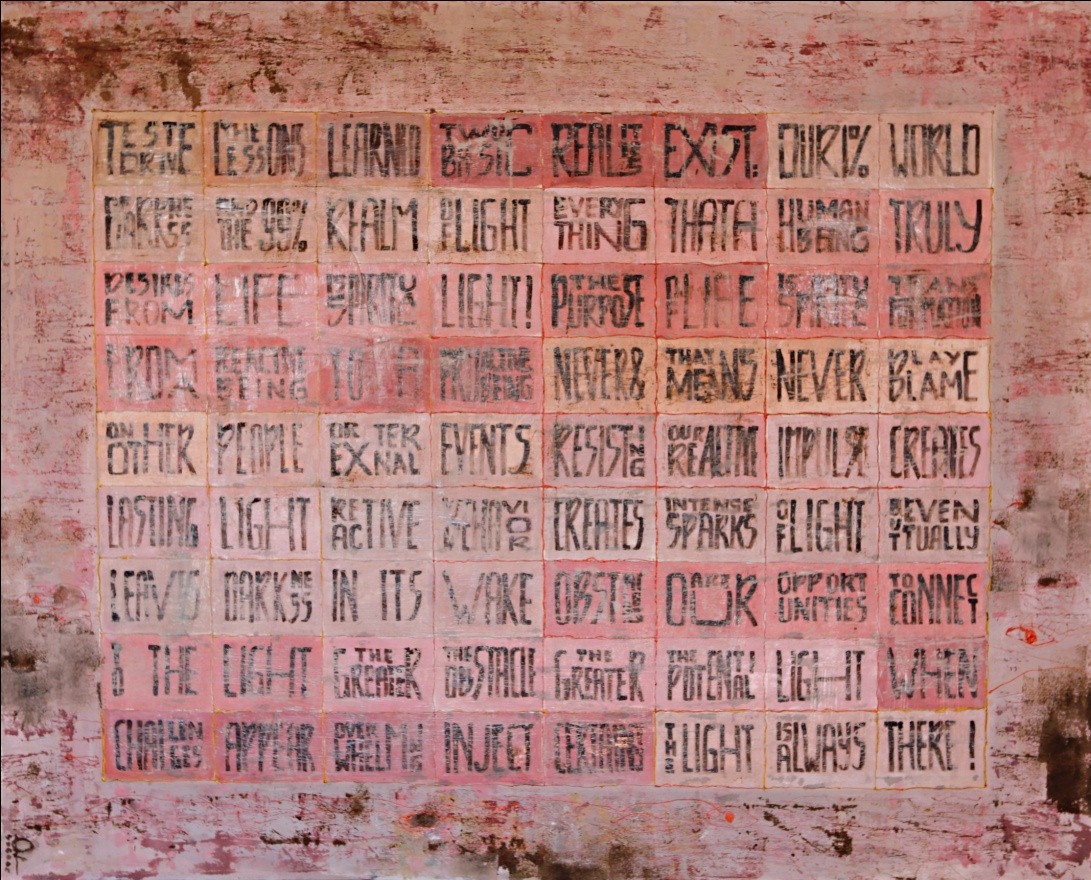 TEST DRIVE THE LESSONS LEARNED TWO BASIC REALITIES EXIST: OUR 1% WORLD
DARKNESS AND THE 99% REALM OF LIGHT EVERYTHING THAT A HUMAN BEING TRULY
DESIRES FROM LIFE IS SPIRITUAL LIGHT! THE PURPOSE OF LIFE IS TRANSFORMATION
FROM REACTIVE BEING TO A PROACTIVE BEING NEVER & THAT MEANS NEVER PLAY BLAME
ON OTHER PEOPLE OR EXTERNAL EVENTS RESISTING OUR REACTIVE IMPULSE CREATES
LASTING LIGHT REACTIVE BEHAVIOR CREATES INTENSE SPARKS OF LIGHT BUT EVENTTUALLY
LEAVES DARKNESS IN ITS WAKE OBSTACLES OUR OPPORTUNITIES TO CONNECT
TO THE LIGHT THE GREATER THE OBSTACLE THE GREATER THE POTENTIAL LIGHT WHEN
CHALLENGES APPEAR OVERWHELMING INJECT CERTAINTY THE LIGHT IS ALWAYS THERE!